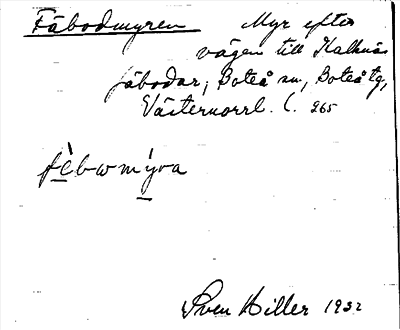 Fäbodmyren Myr efter
vägen till Kalknäs
fäbodar, Boteå sn, Boteå tg,
Västernorrl. l. 265
fèbωmýra
Sven Hiller 1932